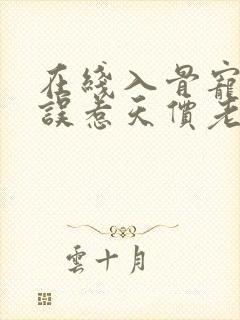 在綫入骨寵
誤惹天價老
雲十月